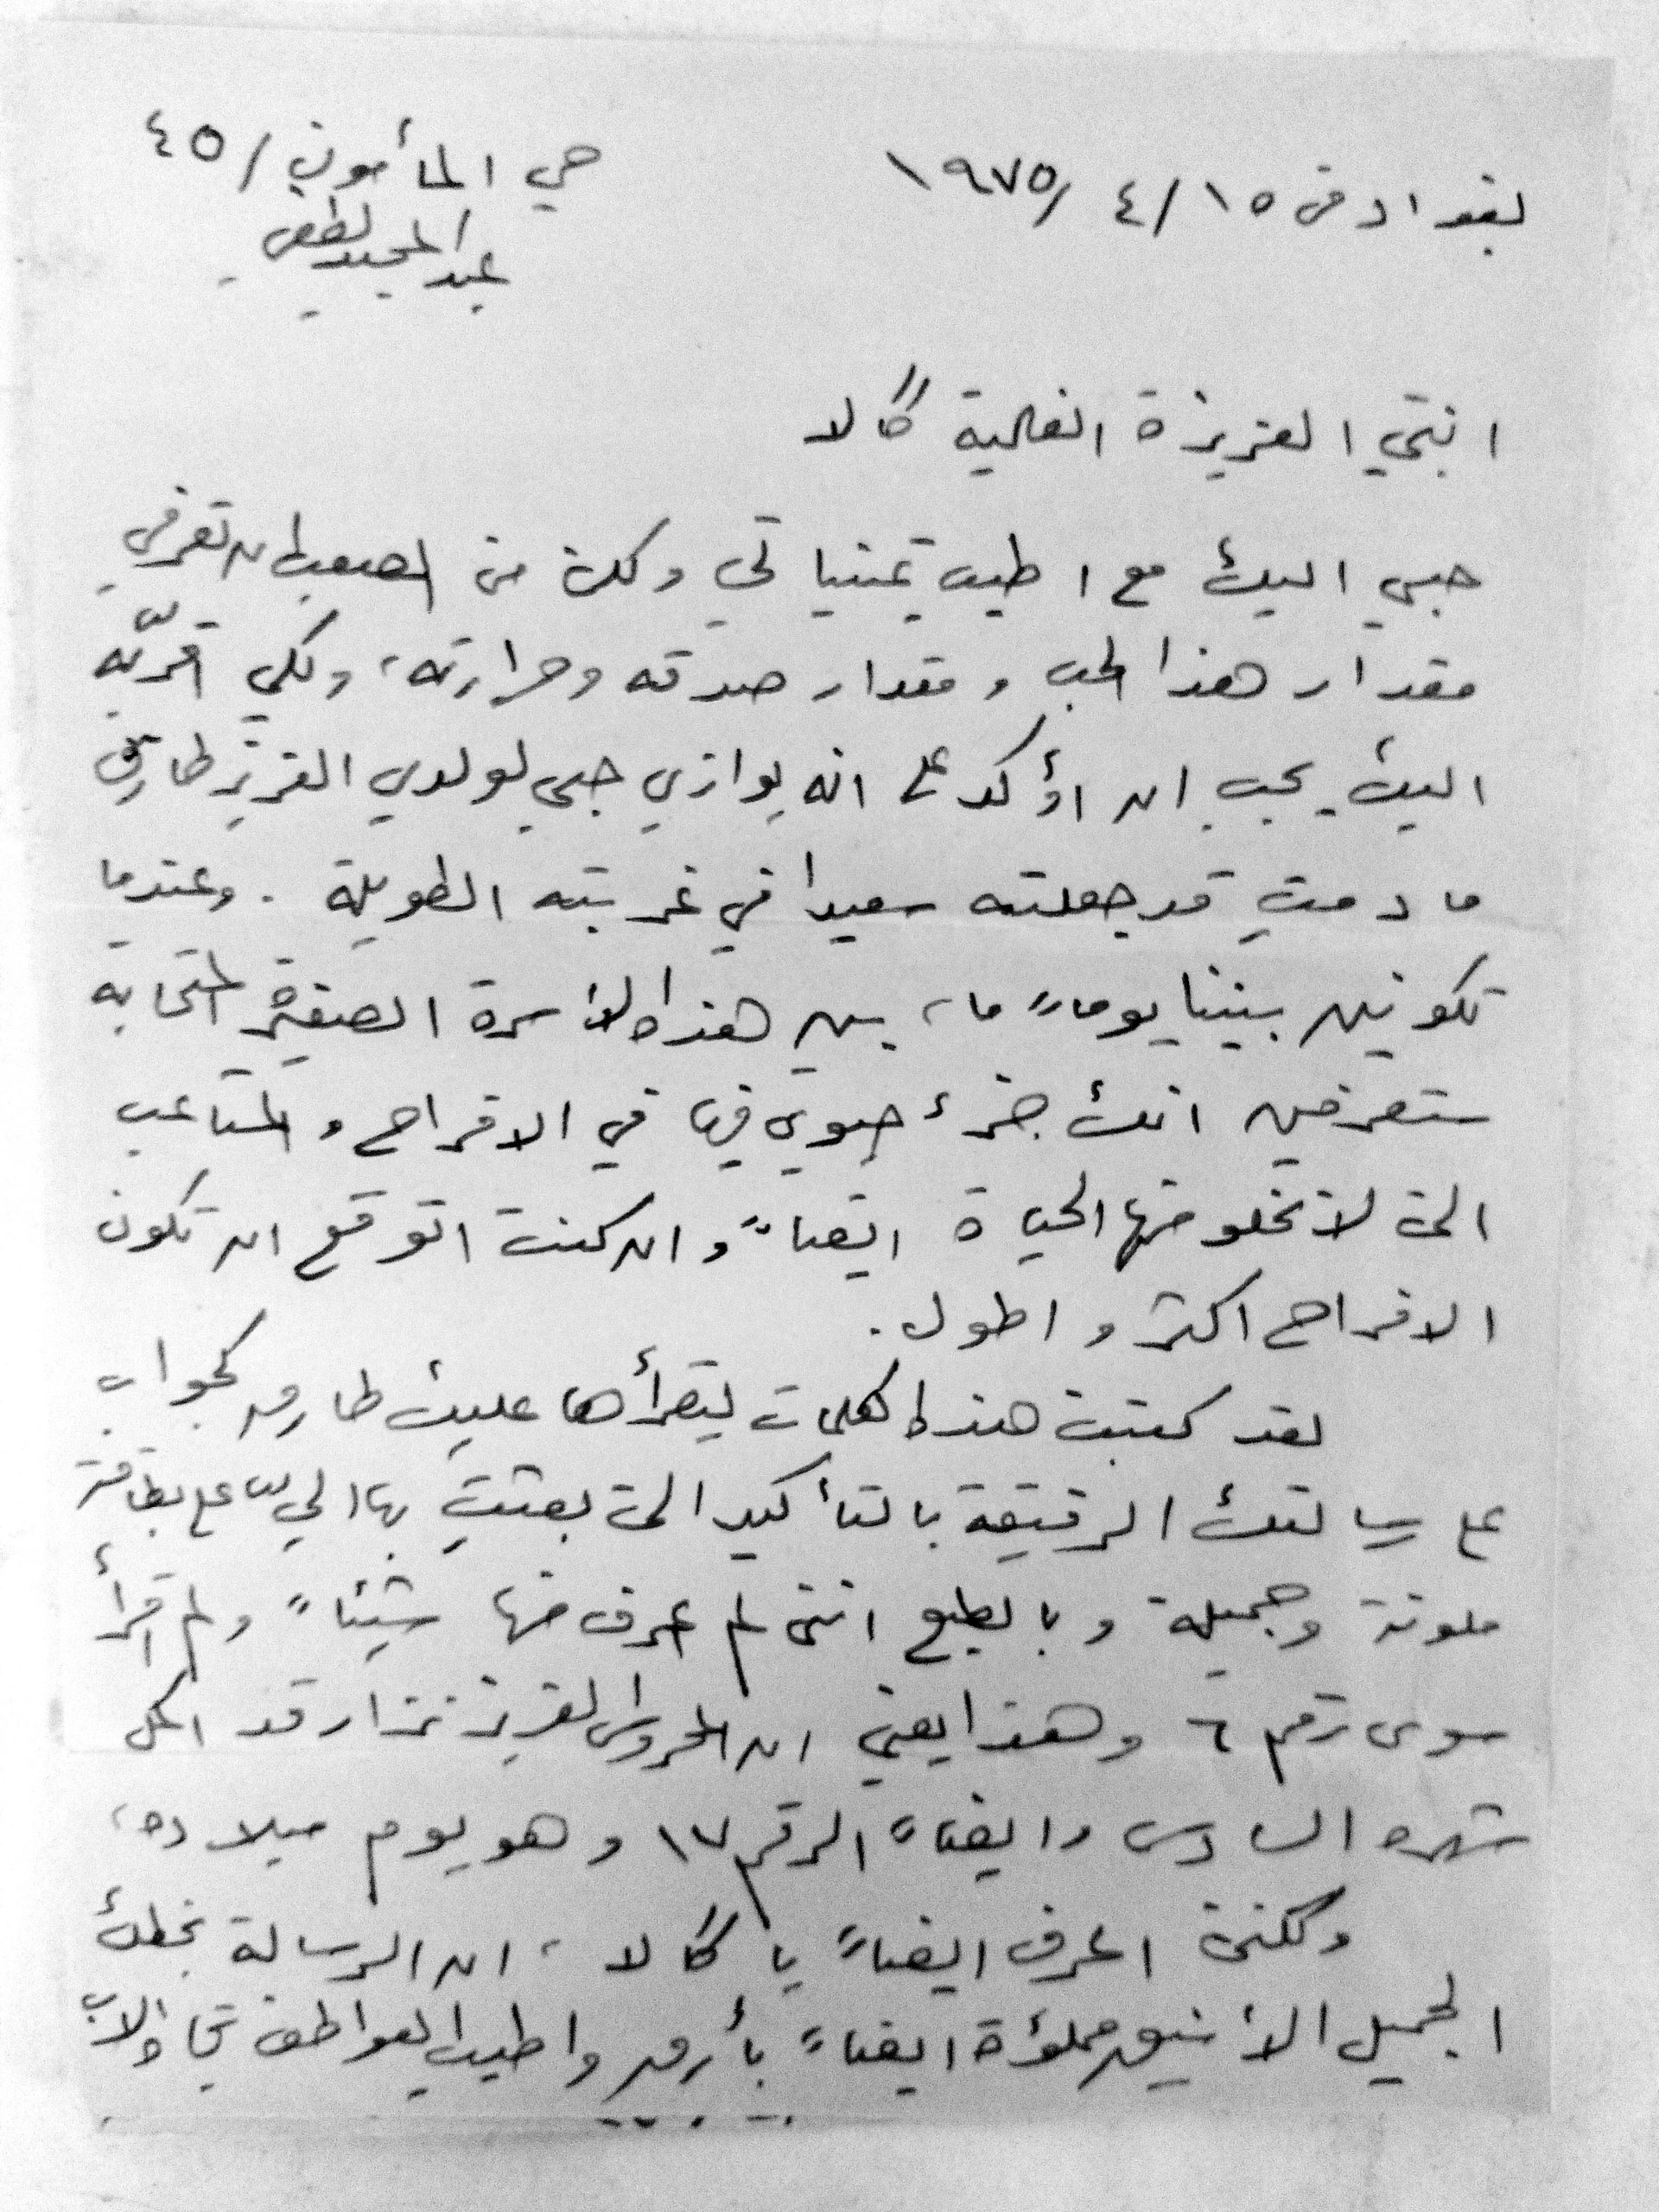 بغداد في ١٥/ ٤ /١٩٧٥
حي المأمون / ٤٥
عبدالمجيد لطفي
ابنتي العزيزة الغالية گالا
حبي اليك مع اطيب تمنياتي ولكن من الصعب ان تعرفي
مقدار هذا الحب ومقدار صدقه وحرارته، ولكي اقرّبه
اليك يجب ان اؤكد على انه يوازي حبي لولدي العزيز طارق
ما دمتِ قد جعلته سعيدا في غربته الطويلة . وعندما
تكونين بيننا يوماً ما، بين هذه الأسرة الصغيرة المتحابة
ستعرفين انك جزء حيوي فيها في الافراح والمتاعب
التي لا تخلو منها الحياة ايضاً وان كنت اتوقع ان تكون
الافراح اكثر واطول.
لقد كتبت هذه الكلمات ليقرأها عليك طارق كجواب
على رسالتك الرقيقة بالتأكيد التي بعثتِ بها اليّ على بطاقة
ملونة وجميلة وبالطبع انني لم اعرف منها شيئاً ولم اقرأ
سوى رقم ٦ وهذا يعني ان المحروس العزيز نزار قد اكمل
شهره السادس وايضاً الرقم ١٧ وهو يوم ميلاده،
ولكنني اعرف ايضاً يا گالا، ان الرسالة بخطك
الجميل الأنيق مملؤة ايضاً بأرق واطيب العواطف تجاه الاب